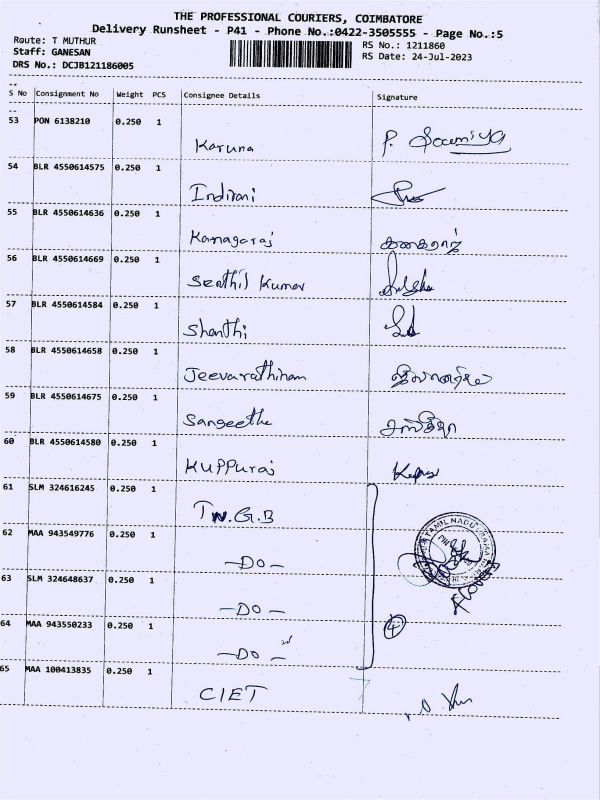 THE PROFESSIONAL COURIERS, COIMBATORE
Delivery Runsheet - P41 - Phone No.:0422-3505555 - Page No.:5
Route: T MUTHUR
RS No.: 1211860
Staff: GANESAN
RS Date: 24-Jul-2023
DRS No.: DCJB121186005
S No Consignment No Weight PCS Consignee Details Signature
53 PON 6138210 0.250 1 Karuna P. Soumiya
54 BLR 4550614575 0.250 1 Indirani
55 BLR 4550614636 0.250 1 Kanagaraj கனகராஜ்
56 BLR 4550614669 0.250 1 Senthil Kumar
57 BLR 4550614584 0.250 1 Shanthi
58 BLR 4550614658 0.250 1 Jeevarathinam
59 BLR 4550614675 0.250 1 Sangeetha
60 BLR 4550614580 0.250 1 Kuppuraj
61 SLM 324616245 0.250 1 T.N.G.B
TAMIL NADU GRAMA
62 MAA 943549776 0.250 1 -Do-
63 SLM 324648637 0.250 1 -Do-
64 MAA 943550233 0.250 1 -Do- 4
65 MAA 100413835 0.250 1 CIET